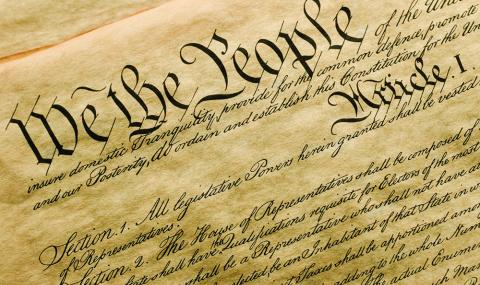 We the People of the
insure domestic Tranquility, provide for the common defence, promote
and our Posterity, do ordain and establish this Constitution for the
Article. I.
Section. 1. All legislative Powers herein granted shall be vested
of Representatives.
Section. 2. The House of Representatives shall be composed of
shall have the Qualifications requisite for Electors of the most
shall be a Representative who shall not have
be an Inhabitant of that State in
Taxes shall be apportioned
adding to the whole
the actual